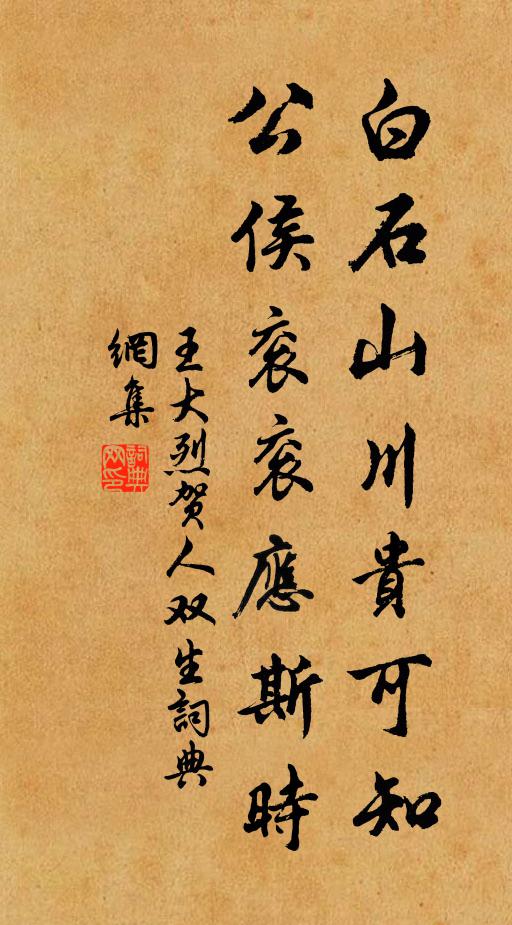 白石山川貴可知
公侯衮衮應斯時
王大烈賀人双生詞典
網集
詞典
网印